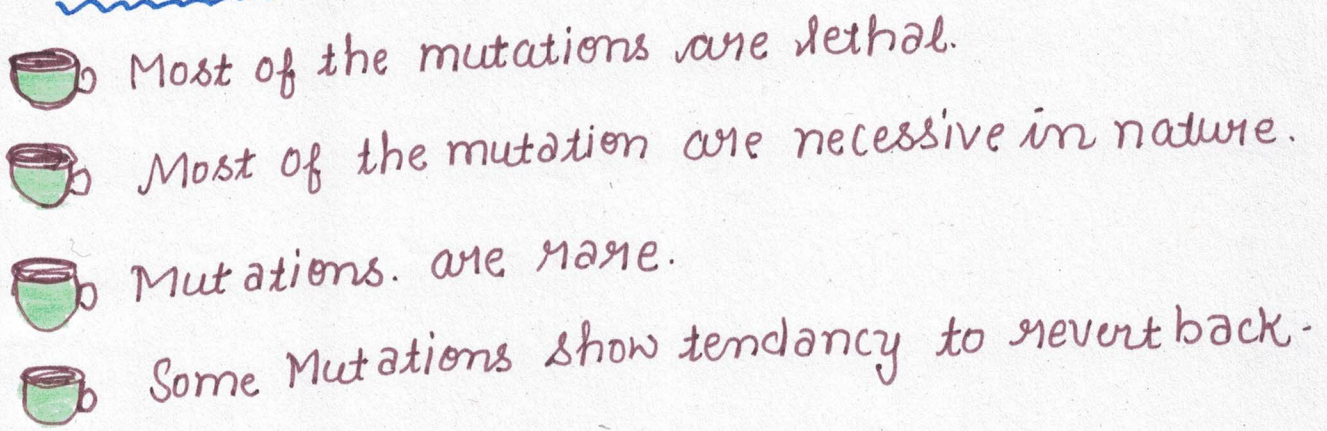 Most of the mutations are lethal.
Most of the mutation are necessive in nature.
Mutations. are rare.
Some Mutations show tendancy to revert back.